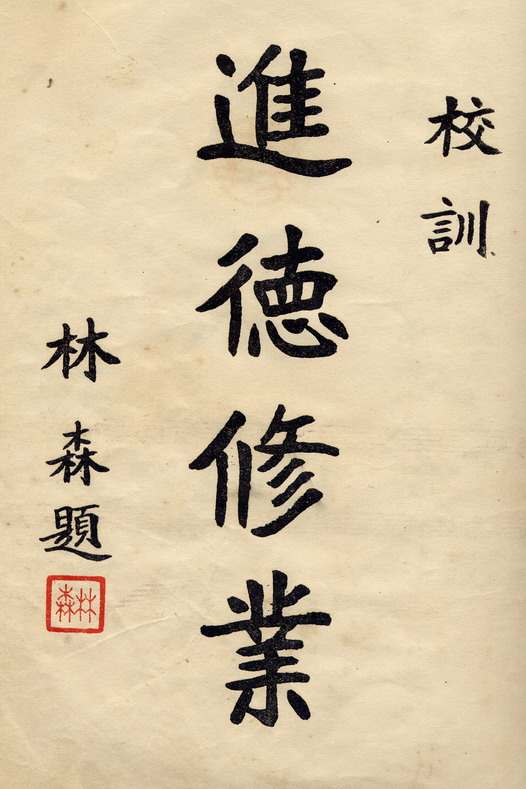 校訓
進德修業
林森題
林森